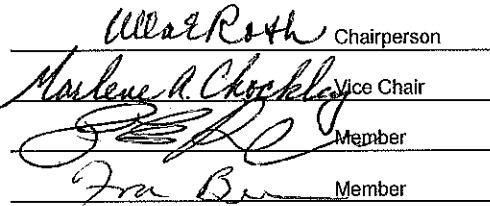 Ulla E Roth Chairperson
Marlene A. Chockley Vice Chair
Member
Member